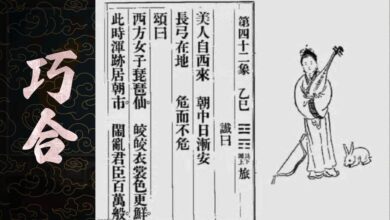 巧合
第四十二象 乙巳 旅
讖曰
美人自西來 朝中日漸安
長弓在地 危而不危
頌曰
西方女子琵琶仙 皎皎衣裳色更鮮
此時渾跡居朝市 鬧亂君臣百萬般